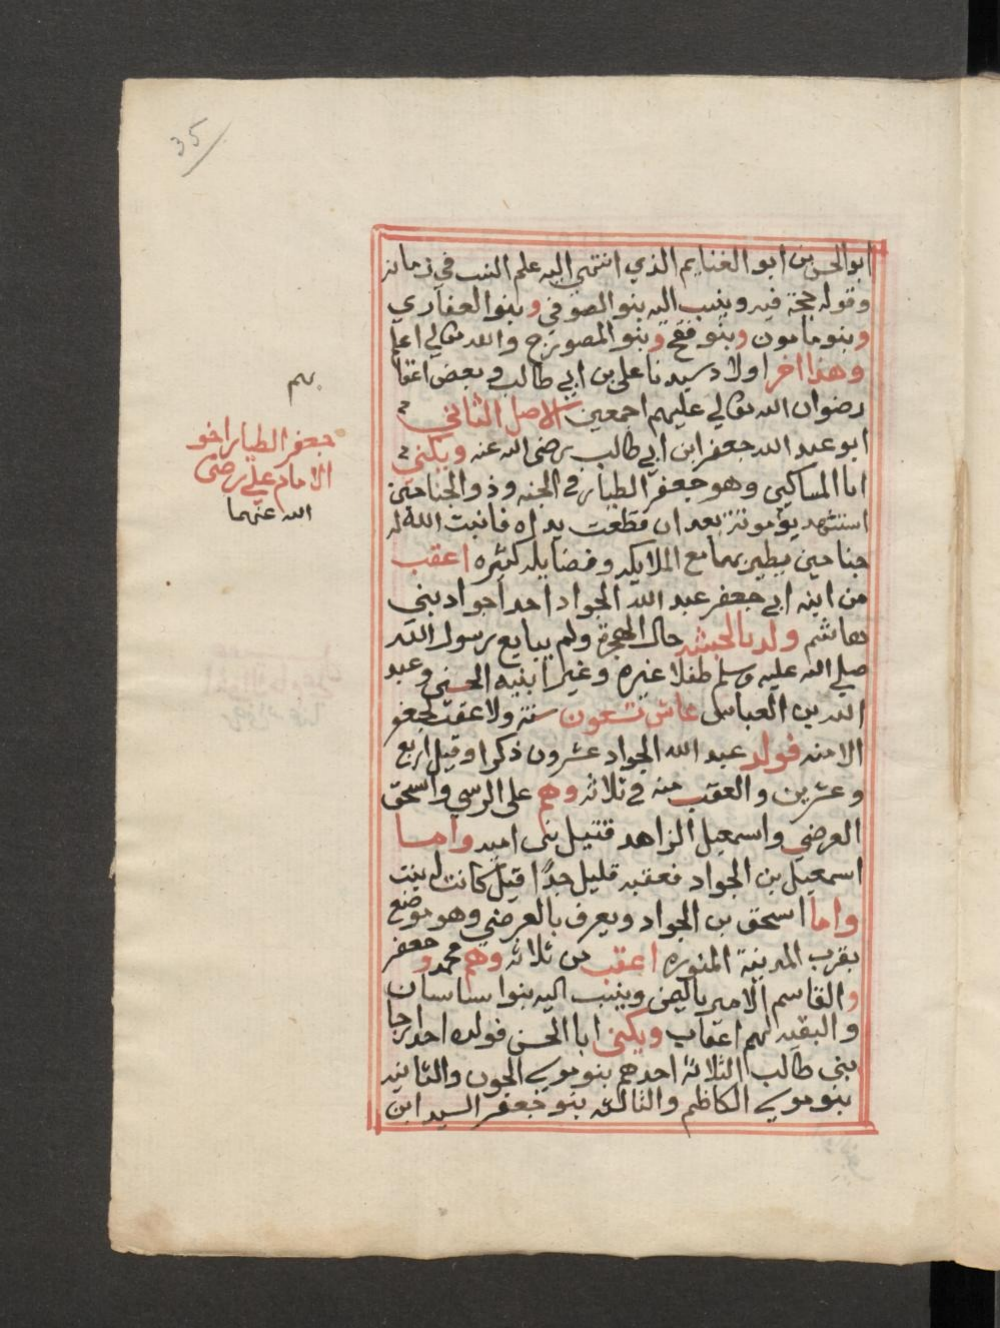 35
ابو الحسن بن ابو الغنايم الذي انتهي اليه علم النسب في زمانه
وقوله حجة فيه وينسب اليه بنو الصوفي وبنو الغفاري
وبنو مامون وبنو فقح وبنو المصورح والله تعالي اعلم
وهذا اخر اولاد سيدنا علي بن ابي طالب وبعض اعقا
رضوان الله تعالي عليهم اجمعين الاصل الثاني
ابو عبد الله جعفر ابن ابي طالب رضى الله عنه ويكني
ابا المساكين وهو جعفر الطيار في الجنه وذو الجناحين
استشهد يؤم موتة بعد ان قطعت يداه فانبت الله له
جناحين يطير بهما مع الملايكه وفضايله كثيره اعقب
من ابنه ابي جعفر عبد الله الجواد احد اجواد بني
هاشم ولد بالحبشه حال الهجرة ولم يبايع رسول الله
صلي الله عليه وسلم طفلا غيره وغير ابنيه الحسنى وعبد
الله بن العباس عاش تسعون سنة ولا عقب لجعفر
الا منه فولد عبد الله الجواد عشرون ذكرا وقيل اربع
وعشرين والعقب منه في ثلاثه وهم على الرسي واسحق
العرضي واسمعيل الزاهد قتيل بنى اميه واما
اسمعيل بن الجواد فعقبه قليل جدًا قيل كانت له بنت
واما اسحق بن الجواد ويعرف بالعرضي وهو موضع
بقرب المدينة المنوره اعقب من ثلاثه وهم محمد و جعفر
والقاسم الامير باليمن وينسب اليه بنوا ساسان
والبقيه لهم اعقاب ويكنى ابا الحسن فولده احد ارجا
بنى طالب الثلاثة احدهم بنو موسي الجون والثانيه
بنو موسي الكاظم والثالثه بنو جعفر السيد ابن
جعفر الطيار اخو
الامام علي رضى
الله عنهما